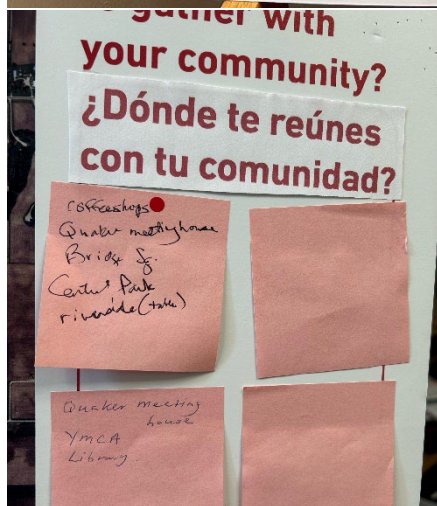 gather with
your community?
¿Dónde te reúnes
con tu comunidad?
coffeeshops
Quaker meetinghouse
Bridge St.
Central Park
riverside (table)
Quaker meeting
house
YMCA
Library